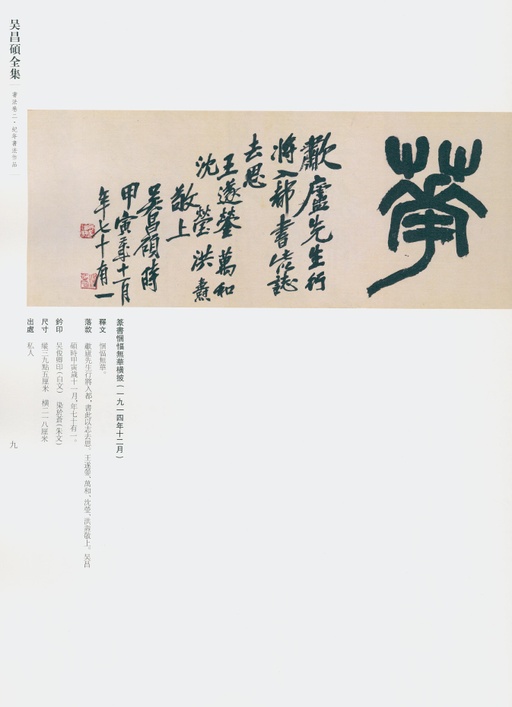 吴昌碩全集
書法卷二·紀年書法作品
華
歗廬先生行
將入都書此誌
去思
王遂鎣萬和
沈瑩洪熹
敬上
吴昌碩時
甲寅歲十一月
年七十有一
篆書悃愊無華橫披(一九一四年十二月)
釋文 悃愊無華。
落款 歗廬先生行將入都，書此以志去思。王遂鎣、萬和、沈瑩、洪熹敬上。吴昌
碩時甲寅歲十一月，年七十有一。
鈐印 吴俊卿印(白文) 染於蒼(朱文)
尺寸 縱三九點五厘米 橫二一八厘米
出處 私人
九